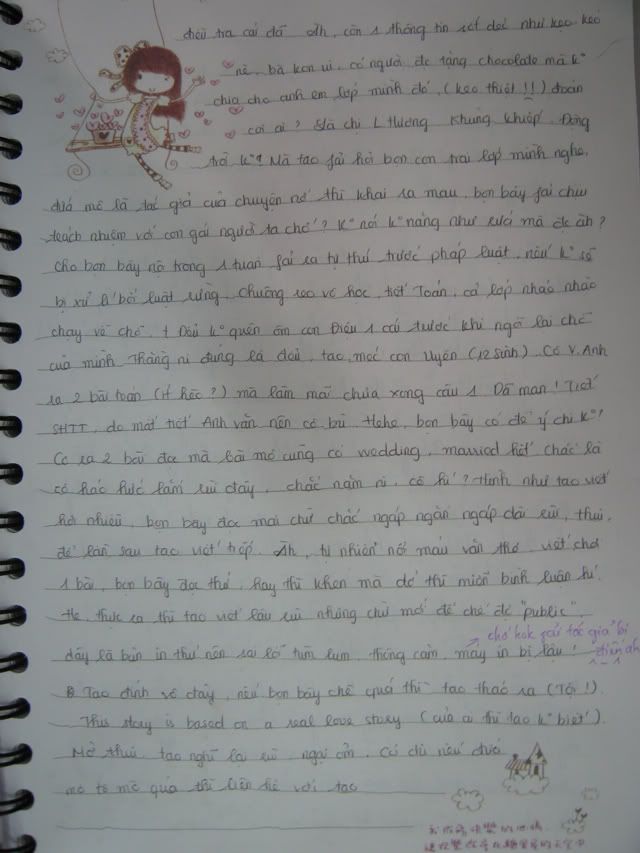 điều tra cái đã. Ah, còn 1 thông tin sét dóc như kẹo kéo
nè, bà kon ui, có người đc tặng chocolate mà k°
chia cho anh em lớp mình đó, (kẹo thiệt!!) đoán
coi ai? Là chị L Hương Khùng khuấp. Động
trời k°? Mà tao fải hỏi bọn con trai lớp mình nghe,
đứa mô là tác giả của chuyện nớ thì khai ra mau, bọn bây fải chịu
trách nhiệm với con gái người ta chớ? K° nói k° năng như rứa mà đc àh?
Cho bọn bây nội trong 1 tuần fải ra tự thú trước pháp luật, nếu k° sẽ
bị xử lí bởi luật rừng. Chuông reo vô học, tiết Toán, cả lớp nháo nhào
chạy về chỗ, t Đầu k° quên ôm con Điệu 1 cái trước khi ngồi lại chỗ
của mình. Thằng ni đúng là dại, tao méc con Uyên (12 Sinh). Cô V. Anh
ra 2 bài toán (H học?) mà làm mãi chưa xong câu 1. Dã man! Tiết
SHTT, do mất tiết Anh văn nên cô bù. Hehe, bọn bây có để ý chi k°?
Cô ra 2 bài đọc mà bài mô cũng có wedding, married hết, chắc là
cô háo hức lắm rùi đây, chắc năm ni, cô hỉ? Hình như tao viết
hơi nhiều, bọn bây đọc mãi chừ chắc ngáp ngắn ngáp dài rùi, thui,
để lần sau tao viết tiếp. Àh, tự nhiên nổi máu văn thơ, viết chơi
1 bài, bọn bây đọc thử, hay thì khen mà dở thì miễn bình luận hí.
He, thực ra thì tao viết lâu rùi nhưng chừ mới để chế độ "public",
chớ hok fải tác giả bị
đây là bản in thử nên sai lỗi tùm lum, thông cảm, máy in bị lậu! điên ah
^_^
B Tao định vô đây, nếu bọn bây chê quá thì tao tháo ra (Tội!).
This story is based on a real love story (của ai thì tao k° biết).
Mờ thui, tao nghĩ lại rùi, ngại ồm. Có chi nếu đứa
mô tò mò quá thì liên hệ với tao